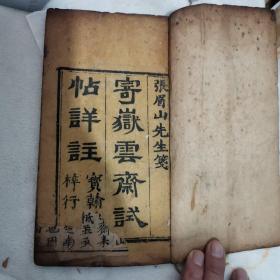 張眉山先生箋
寄嶽雲齋試
帖詳註
寶翰
梓行